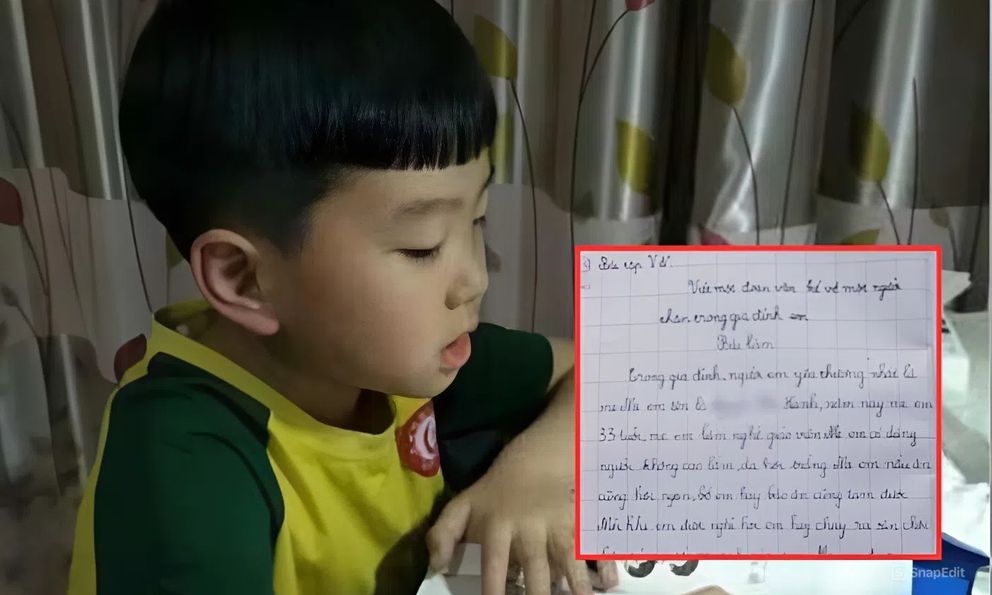 Viết một đoạn văn kể về một người
thân trong gia đình em
Bài làm
Trong gia đình, người em yêu thương nhất là
mẹ. Mẹ em tên là Hạnh, năm nay mẹ em
33 tuổi, mẹ em làm nghề giáo viên. Mẹ em có dáng
người không cao lắm, da hơi trắng. Mẹ em nấu ăn
cũng hơi ngon, bố em hay bảo ăn cũng tạm được
Mỗi khi em được nghỉ học em hay chạy ra sân chơi
SnapEdit